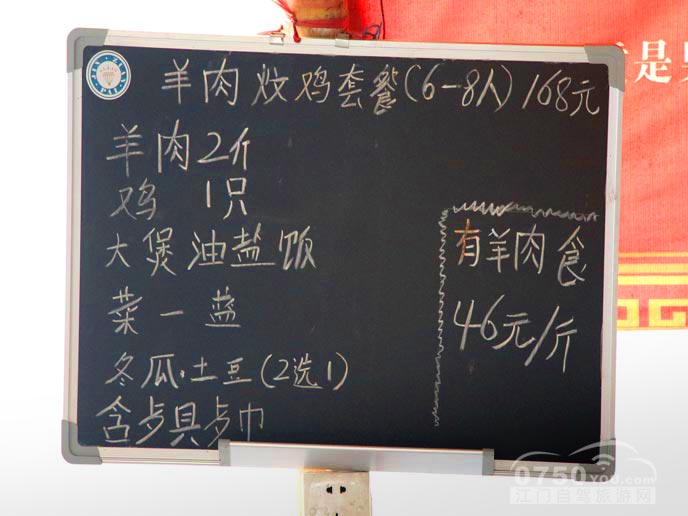 羊肉炆鸡套餐(6-8人)168元
羊肉2斤
鸡 1只
大煲油盐饭
菜一蓝
冬瓜·土豆(2选1)
含歺具歺巾
有羊肉食
46元/斤
是
0750you.com
江门自驾旅游网